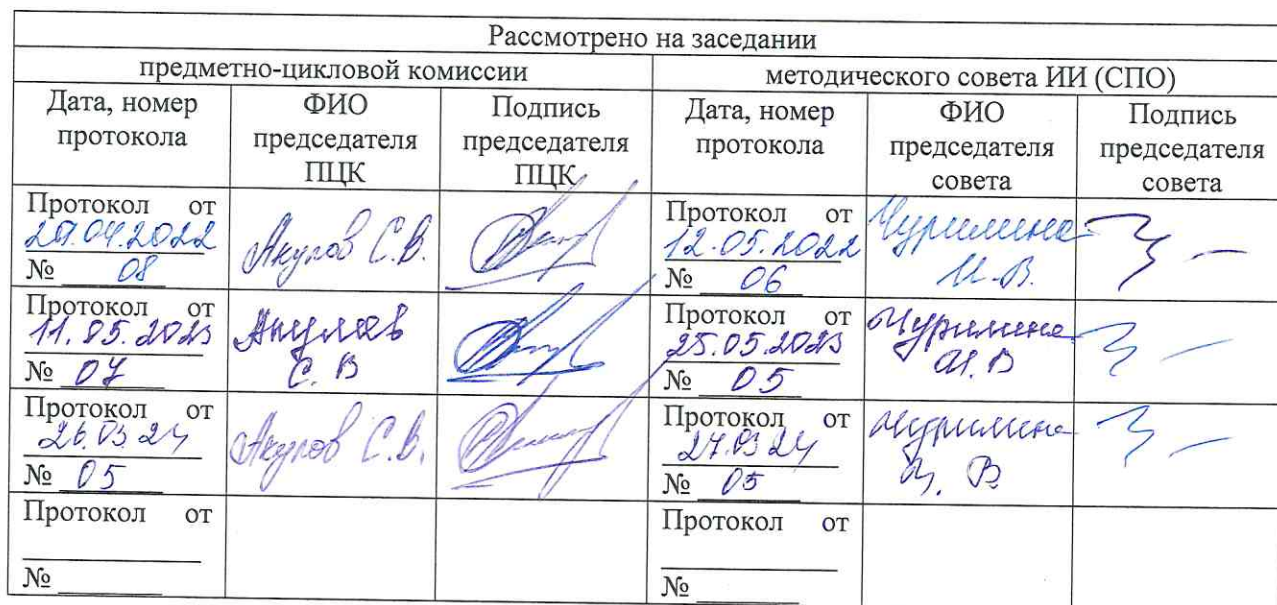 Рассмотрено на заседании
предметно-цикловой комиссии
методического совета ИИ (СПО)
Дата, номер протокола
ФИО председателя ПЦК
Подпись председателя ПЦК
Дата, номер протокола
ФИО председателя совета
Подпись председателя совета
Протокол от
04.2022
№ 08
Акулов С.В.
Протокол от
12.05.2022
№ 06
Чурилина
И.В.
Протокол от
11.05.2023
№ 07
Акулов
С. В
Протокол от
25.05.2023
№ 05
Чурилина
И.В
Протокол от
26.03 24
№ 05
Акулов С.В.
Протокол от
27.03 24
№ 05
Чурилина
И. В.
Протокол от
№
Протокол от
№